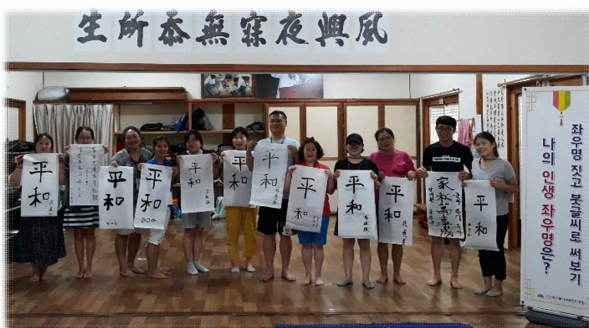 夙興夜寐無忝所生
平和
平和
平和
平和
平和
平和
平和
平和
平和
家和萬事成
平和
좌우명 짓고 붓글씨로 써보기
나의 인생 좌우명은?